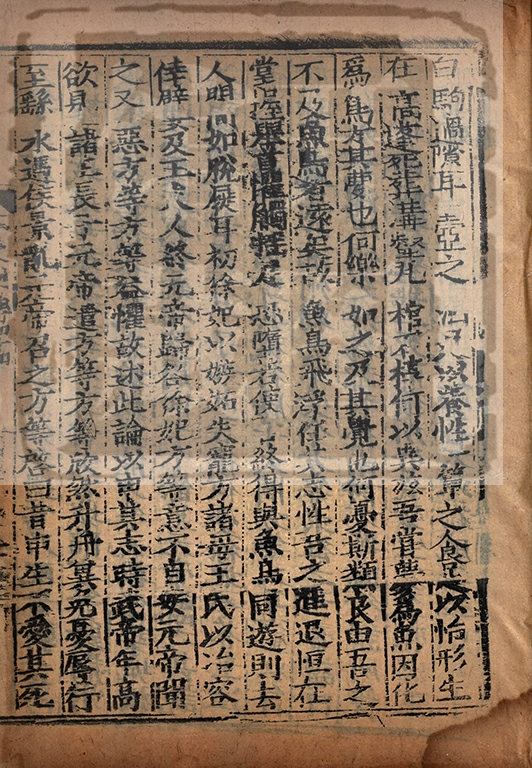 白駒過隙耳壺之以養性一簞之食以怡形生
在蒿蓬死葬溝壑瓦棺石槨何以異茲吾嘗夢爲魚因化
爲鳥方其夢也何樂如之及其覺也何憂斯類良由吾之
不及魚鳥者遠矣故魚鳥飛浮任其志性吾之進退恒在
掌握舉觸搖足恐墮若使吾終得與魚鳥同遊則去
人間如脫屣耳初徐妃以嫉妬失寵方諸母王氏以冶容
倖嬖及王夫人終元帝歸咎徐妃方等意不自安元帝聞
之又惡方等方等益懼故述此論以申其志時武帝年高
欲見諸王長子元帝遣方等方等欣然升舟冀免憂辱行
至繇水遇侯景亂元帝召之方等啓曰昔申生不愛其死